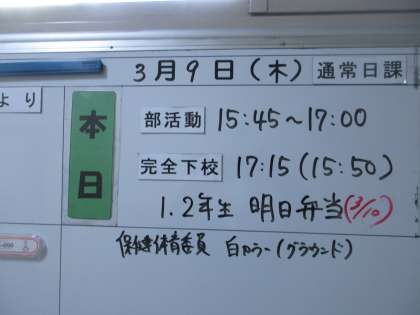 3月9日(木) 通常日課
より
本日
部活動 15:45〜17:00
完全下校 17:15(15:50)
1.2年生 明日弁当(3/10)
保健体育委員 白カラー(グラウンド)